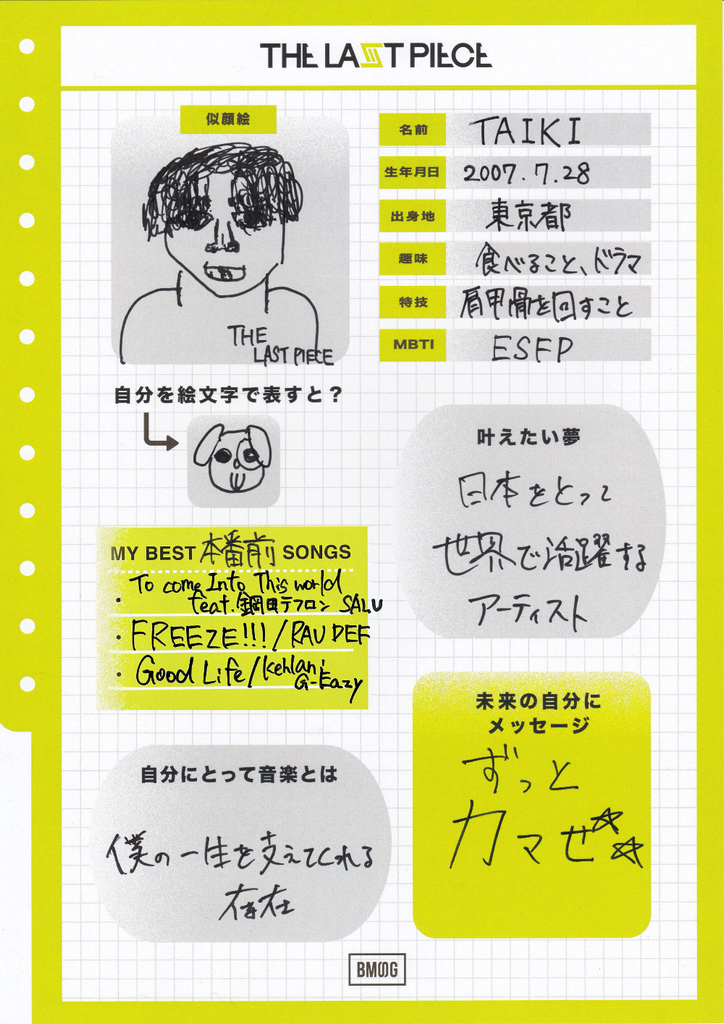 THE LAST PIECE
似顔絵
THE
LAST PIECE
名前 TAIKI
生年月日 2007.7.28
出身地 東京都
趣味 食べること、ドラマ
特技 肩甲骨を回すこと
MBTI ESFP
自分を絵文字で表すと？
叶えたい夢
日本をとって
世界で活躍する
アーティスト
MY BEST 本番前 SONGS
・To come Into This world
feat.鋼田テフロン SALU
・FREEZE!!!/RAU DEF
・Good Life/Kehlani
G-Eazy
未来の自分に
メッセージ
ずっと
カマせ☆☆
自分にとって音楽とは
僕の一生を支えてくれる
存在
BMSG